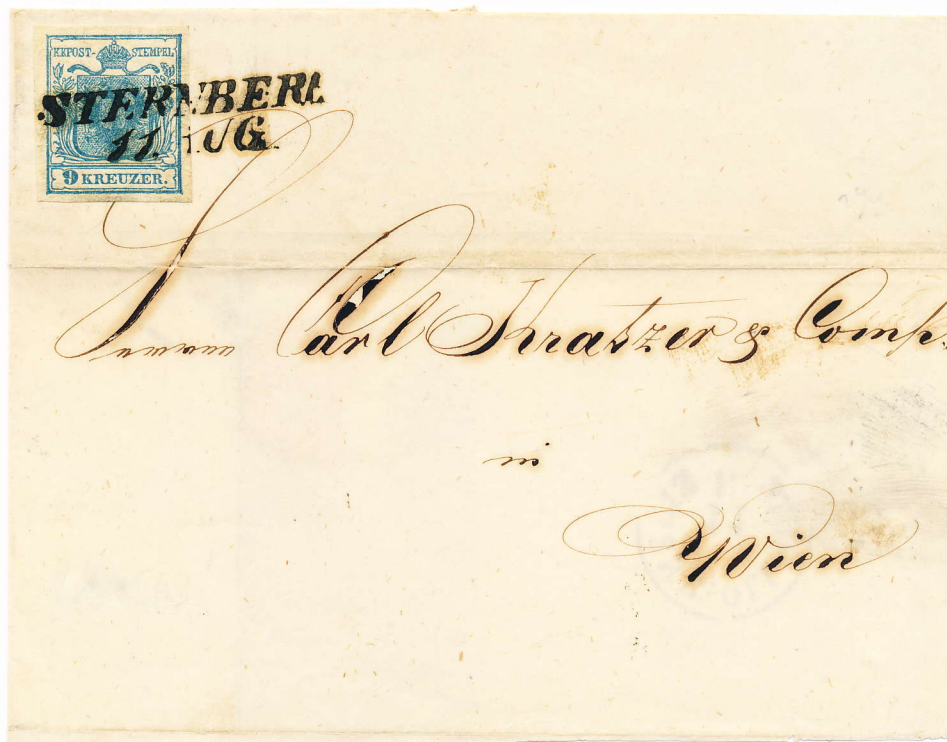 KKPOST-STEMPEL
STERNBERG
11. AUG.
9 KREUZER.
Herren Carl Kratzer & Comp.
in
Wien